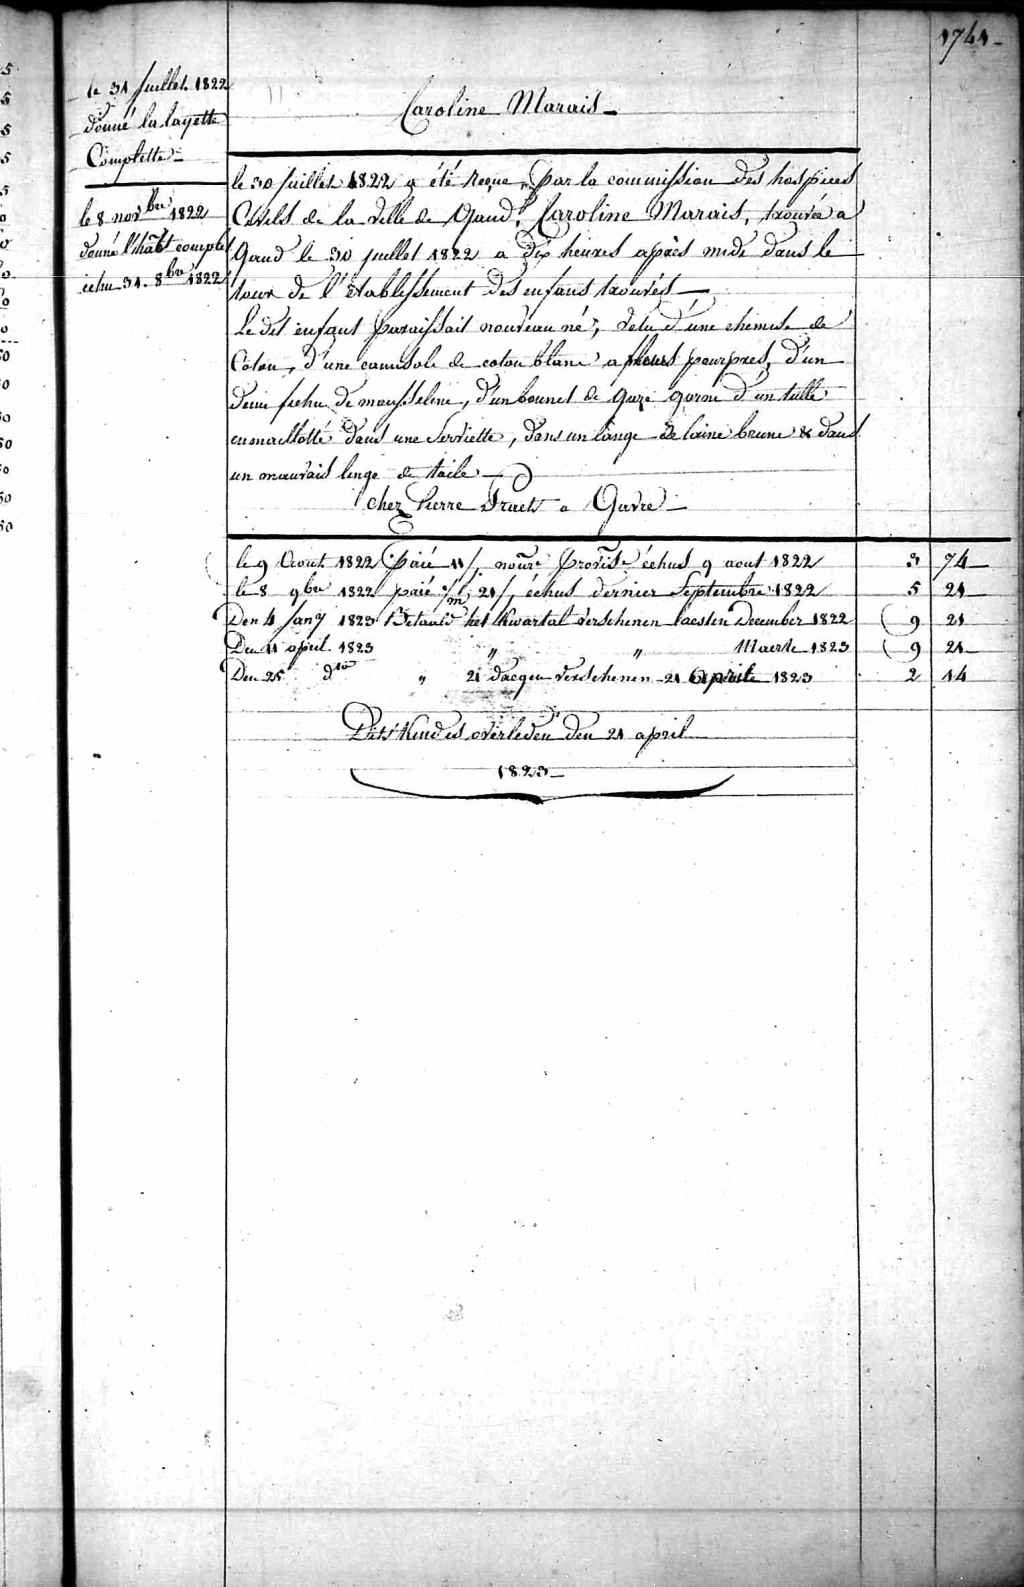 1741-
le 31 Juillet 1822
donné la layette
Complette-
le 8 nov bre 1822
donné l'habt complet
échu 31. 8bre 1822
Caroline Marais-
le 30 Juillet 1822 a été reçue, par la commission des hospices
Civils de la ville de Gand, Caroline Marais, trouvée a
Gand le 30 juillet 1822 a dix heures après midi dans le
tour de l'établissement des enfans trouvés-
Le dit enfant paraissait nouveau né, vetu d'une chemise de
Coton, d'une camisole de coton blanc a fleurs pourpres, d'un
demi fichu de mousseline, d'un bonnet de gaze garni d'un tulle
enmaillotté dans une serviette, dans un lange de laine brune & dans
un mauvais linge de toile-
chez Pierre a Gavre-
le 9 Aout 1822 Paié 11/. nourre Provise échus 9 aout 1822 3 74
le 8 9bre 1822 paié 2/m 21/, échus dernier Septembre 1822 5 21
Den 4 Jany 1823 Betaald het Kwartal verschenen laesten December 1822 9 21
Den 11 april 1823 " " Maerte 1823 9 21
Den 25 do " 21 daegen verschenen 21 aprile 1823 2 14
Dits Kind is overleden den 21 april
1823-
5
5
5
5
5
0
0
0
0
0
50
0
50
50
0
50
50